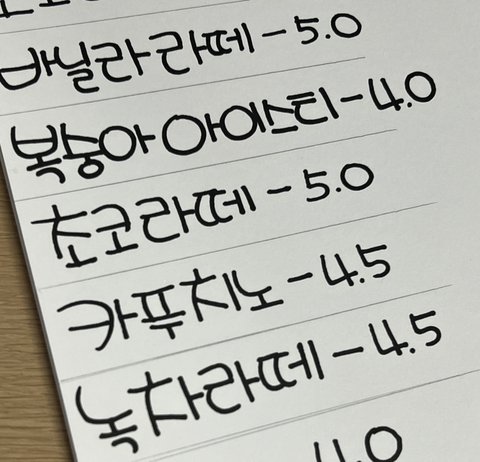 바닐라 라떼 - 5.0
복숭아 아이스티 - 4.0
초코라떼 - 5.0
카푸치노 - 4.5
녹차라떼 - 4.5
4.0